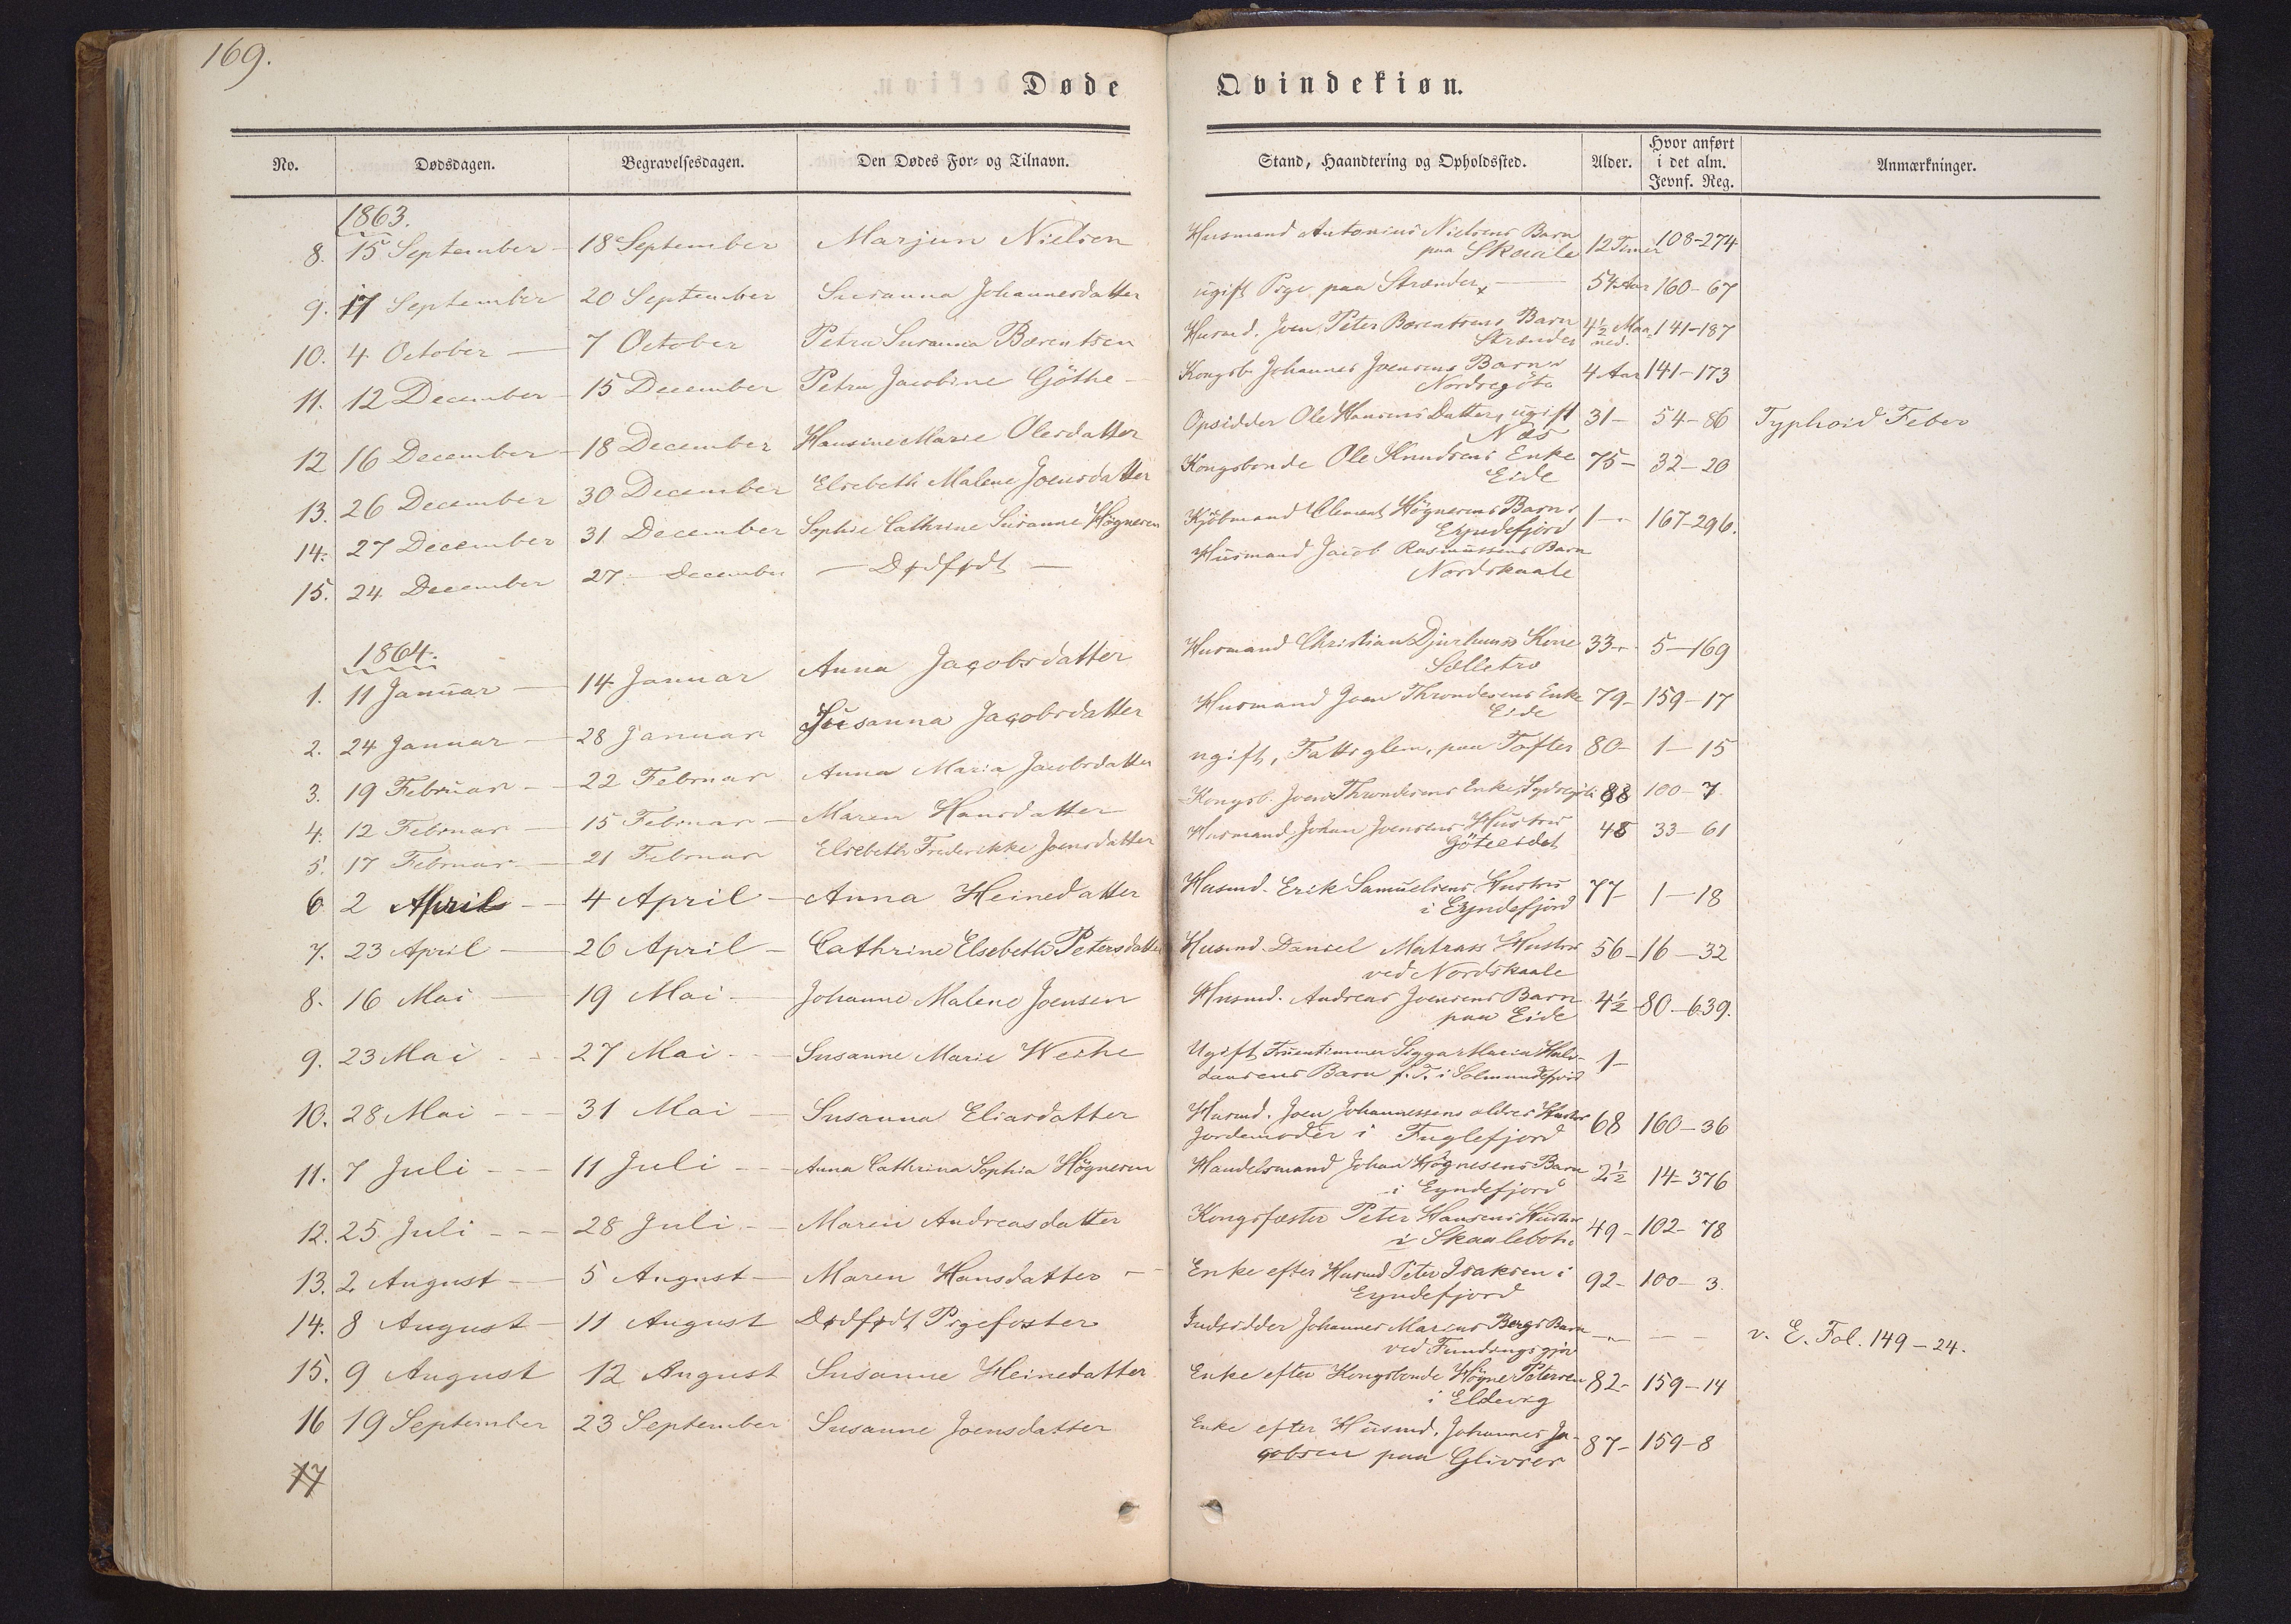 169.
Døde Qvindekiøn.
No. Dødsdagen. Begravelsesdagen. Den Dødes For- og Tilnavn. Stand, Haandtering og Opholdssted. Alder. Hvor anført i det alm. Jevnf. Reg. Anmærkninger.
1863.
8. 15 September - 18 September Marjun Nielsen Husmand Antonius Nielsens Barn paa Skaale 12 Timer 108-274
9. 17 September 20 September Susanna Johannesdatter ugift Pige paa Strænder 54 Aar 160-67
10. 4 October - 7 October Petra Susanna Bærentsen Husmd. Joen Peter Bærentsens Barn Strænder 4½ Maaned. 141-187
11. 12 December - 15 December Petra Jacobine Göthe - Kongsb. Johannes Joensens Barn Nordregöte 4 Aar 141-173
12 16 December - 18 December Hansine Marie Olesdatter Opsidder Ole Hansens Datter, ugift Næs 31- 54-86 Typhoid Feber
13. 26 December 30 December Elsebeth Malene Joensdatter Kongsbonde Ole Knudsens Enke Eide 75- 32-20
14. 27 December 31 December Sophie Cathrine Susanne Högnesen Kjöbmand Clement Högnesens Barn Eyndefjord 1- 167-296.
15. 24 December 27 December - Dødfødt - Husmand Jacob Rasmussens Barn Nordskaale
1864.
1. 11 Januar - 14 Januar Anna Jacobsdatter Husmand Christian Djurhuus Kone Selletræ 33- 5-169
2. 24 Januar - 28 Januar Susanna Jacobsdatter Husmand Joen Throndesens Enke Eide 79- 159-17
3. 19 Februar - 22 Februar Anna Maria Jacobsdatter ugift, Fattiglem, paa Tofter 80- 1-15
4. 12 Februar - 15 Februar - Maren Hansdatter Kongsb. Joen Throndesens Enke, Sydregöte 88 100-7
5. 17 Februar - 21 Februar Elsebeth Frederikke Joensdatter Husmand Johan Joensens Hustru Göteeidet 48 33-61
6. 2 April - 4 April - Anna Heinedatter Husmd. Erik Samuelsens Hustru i Eyndefjord 77- 1-18
7. 23 April - 26 April - Cathrine Elsebeth Petersdatter Husmd. Daniel Matrass Hustru ved Nordskaale 56- 16-32
8. 16 Mai - 19 Mai - Johanne Malene Joensen Husmd. Andreas Joensens Barn paa Eide 4½ 80-639.
9. 23 Mai - 27 Mai - Susanne Marie Weihe Ugift Fruentimmer Sigga Maria Halvdansens Barn p. T. i Solmundefjord 1-
10. 28 Mai - 31 Mai - Susanna Eliasdatter Husmd. Joen Johannessens ældres Hustru Jordemoder i Fuglefjord 68 160-36
11. 7 Juli - 11 Juli - Anna Cathrina Sophia Högnesen Handelsmand Johan Högnesens Barn i Eyndefjord 2½ 14-376
12. 25 Juli - 28 Juli - Maren Andreasdatter Kongsfæster Peter Hansens Hustru i Skaalebotn 49- 102-78
13. 2 August - 5 August - Maren Hansdatter - Enke efter Husmd Peter Isaksen i Eyndefjord 92- 100-3
14. 8 August - 11 August Dødfødt Pigefoster Indsidder Johannes Marius Bergs Barn ved Fundingsgjov - - v. E. Fol. 149-24.
15. 9 August 12 August Susanne Heinedatter Enke efter Kongsbonde Högne Petersen i Eldevig 82- 159-14
16 19 September 23 September Susanne Joensdatter Enke efter Husmd. Johannes Jacobsen paa Glivrer 87- 159-8
17